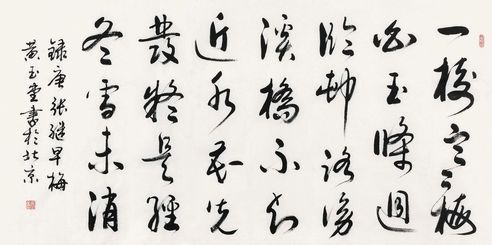 一樹寒梅
白玉條迥
臨邨路傍
溪橋不知
近水花先
發疑是經
冬雪未消
録唐张继早梅
黄玉堂書於北京